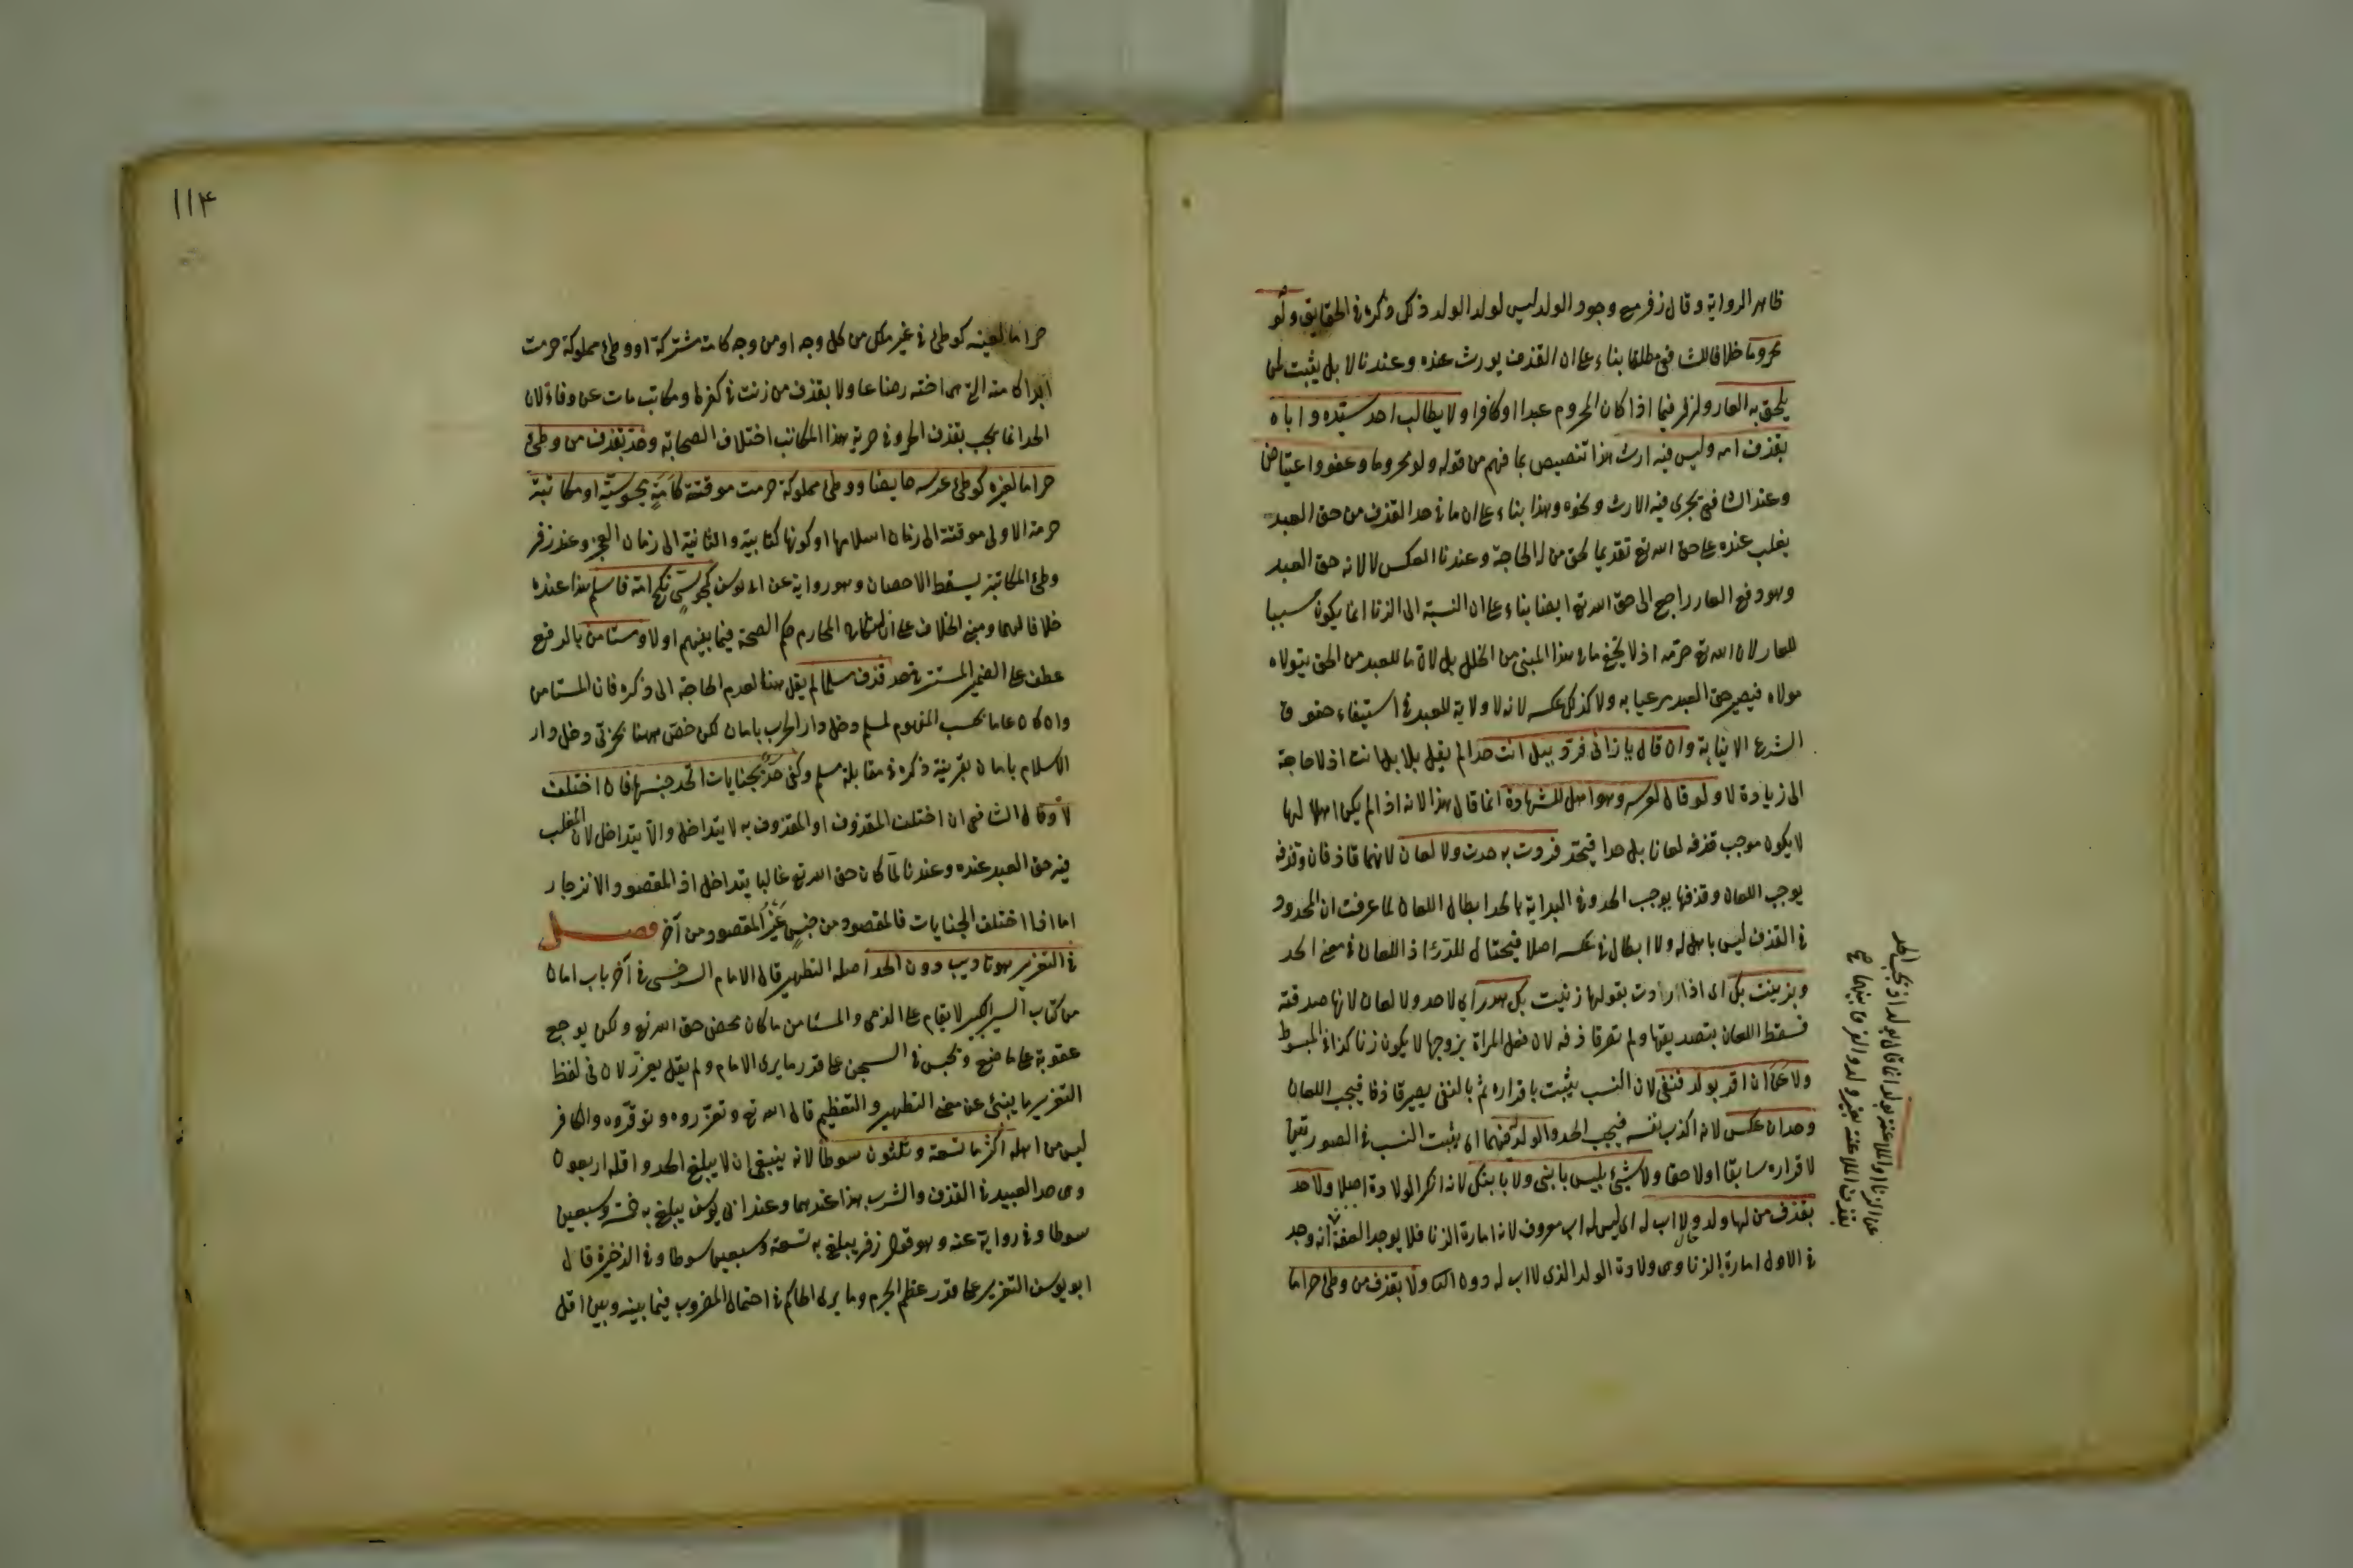 ظاهر الرواية وقال زفر مع وجود الولد ليس لولد الولد ذلك ذكره في الحقايق ولو
محروما خلافا للشافعي مطلقا بناء على ان القذف يورث عنده وعندنا لا بل يثبت لمن
يلحق به العار ولزفر فيما اذا كان المحروم عبدا او كافرا ولا يطالب احد سيده واباه
بقذف امه وليس فيه ارث هذا تنصيص بما فهم من قوله ولو محروما وعفو واعتياض
وعند الشافعي يجرى فيه الارث ونحوه وهذا بناء على ان ما في حد القذف من حق العبد
يغلب عنده على حق الله تع تقديما لحق من له الحاجة وعندنا العكس لا لانه حق العبد
وهو دفع العار راجع الى حق الله تع ايضا بناء على ان النسبة الى الزنا انما يكون سببا
للعار لان الله تع حرمه اذ لا يخفى ما في هذا المبنى من الخلل بل لان ما للعبد من الحق يتولاه
مولاه فيصير حق العبد مرعيا به ولا كذلك عكسه لانه لا ولاية للعبد في استيفاء حقوق
الشرع الا نيابة وان قال يا زاني فرد ببل انت حدا لم يقل بلا بل انت اذ لا حاجة
الى زيادة لا ولو قال لعرسه وهو اهل للشهادة انما قال هذا لانه اذا لم يكن اهلا لها
لا يكون موجب قذفه لعانا بل حدا فيحد فردت به حدت ولا لعان لانهما قاذفان وقذفه
يوجب اللعان وقذفها يوجب الحد وفي البداية بالحد ابطال اللعان لما عرفت ان المحدود
في القذف ليس باهل له ولا ابطال في عكسه اصلا فيحتال للدرء اذ اللعان في معنى الحد
وبزنيت بك اى اذا ارادت بقولها زنيت بك هدرا اى لا حد ولا لعان لانها صدقته
فسقط اللعان بتصديقها ولم تصر قاذفه لان فعل المراة بزوجها لا يكون زنا كذا في المبسوط
ولاعن ان اقر بولد فنفى لان النسب يثبت باقراره ثم بالنفى يصير قاذفا فيجب اللعان
وحد ان عكس لانه اكذب نفسه فيجب الحد والولد له فيهما اى يثبت النسب في الصورتين
لاقراره سابقا او لاحقا ولا شيئ بليس بابنى ولا بابنك لانه انكر الولادة اصلا ولا حد
بقذف من لها ولد ولا اب له اى ليس له اب معروف لانه امارة الزنا فلا يوجد العفة انه وجد
في الاول امارة الزنا وهى ولادة الولد الذى لا اب له دون ولا بقذف من وطئ حراما
عن الزنا او الملاعنة بولد انما قال بولد اذ يجب الحد
بقذف الملاعنة بغير ولد والفرق بينهما
١١٤
حراما لعينه كوطئ في غير ملك من كل وجه او من وجه كامة مشتركة او وطئ مملوكة حرمت
ابدا كامته التى هى اخته رضاعا ولا بقذف من زنت في كفرها ومكاتب مات عن وفاء لان
الحد انما يجب بقذف الحر وفي حرية هذا المكاتب اختلاف الصحابة وحد بقذف من وطئ
حراما لغيره كوطئ عرسه حايضا ووطئ مملوكة حرمت موقتة كامة مجوسية او مكاتبة
حرمة الاولى موقتة الى زمان اسلامها او كونها كتابية والثانية الى زمان العجز وعند زفر
وطئ المكاتبة يسقط الاحصان وهو رواية عن ابى يوسف كمجوسى نكح امه فاسلم هذا عنده
خلافا لهما ومبنى الخلاف على ان لنكاح المحارم حكم الصحة فيما بينهم او لا ومستامن بالرفع
عطف على الضمير المستتر في حد قذف مسلما لم يقل هنا لعدم الحاجة الى ذكره فان المستامن
وان كان عاما بحسب المفهوم لمسلم دخل دار الحرب بامان لكن خص ههنا بحربى دخل دار
الاسلام بامان بقرينة ذكره في مقابلة مسلم وكفى حد بجنايات اتحد جنسها فان اختلفت
لا وقال الشافعي ان اختلف المقذوف او المقذوف به لا يتداخل والا يتداخل لان المغلب
فيه حق العبد عنده وعندنا لما كان حق الله تع غالبا يتداخل اذ المقصود الانزجار
اما اذا اختلف الجنايات فالمقصود من جنس غير المقصود من آخر فصل
في التعزير هو تاديب دون الحد اصله التطهير قال الامام السرخسى في آخر باب امان
من كتاب السير الكبير لا يقام على الذمى والمستامن ما كان محض حق الله تع ولكن يوجع
عقوبة على ما صنع ويحبس في السجن على قدر ما يرى الامام ولم يقل يعزر لان في لفظ
التعزير ما ينبئ عن معنى التطهير والتعظيم قال الله تع وتعزروه وتوقروه والكافر
ليس من اهله اكثره تسعة وثلثون سوطا لانه ينبغى ان لا يبلغ الحد واقله اربعون
وهى حد العبيد في القذف والشرب هذا عندهما وعند ابى يوسف يبلغ به خمسة وسبعين
سوطا وفي رواية عنه وهو قول زفر يبلغ به تسعة وسبعين سوطا وفي الذخيرة قال
ابو يوسف التعزير على قدر عظم الجرم وما يرى الحاكم في احتمال المضروب فيما بينه وبين اقل